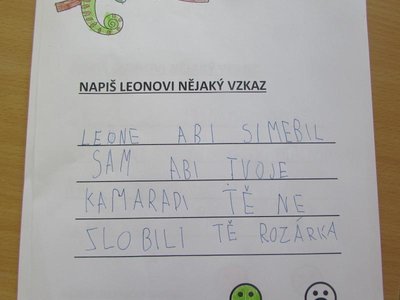 NAPIŠ LEONOVI NĚJAKÝ VZKAZ
LEONE ABI SIMEBIL
SÁM ABI TVOJE
KAMARADI TĚ NE
ZLOBILI TĚ ROZÁRKA